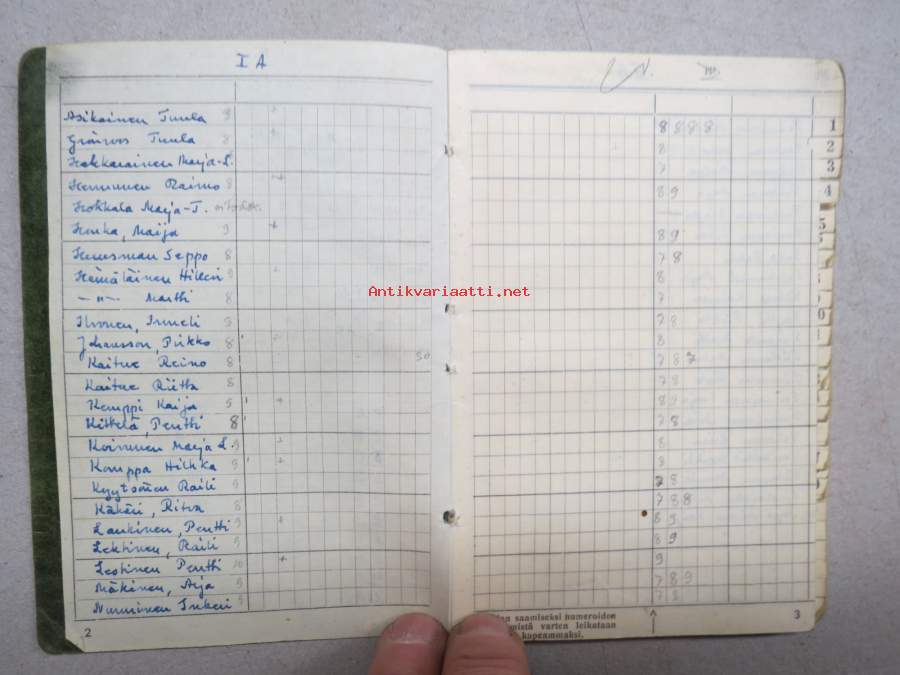 I A
Asikainen Tuula 9 +
Gränroos Tuula 8 +
Hakkarainen Marja-L.
Hemminen Raimo 8 +
Hokkala Marja-T.
Honka, Maija 9 +
Huusman Seppo 8
Hämäläinen Hilkka 9
—"— Martti 8
Ihonen, Irmeli 9
Johansson, Pirkko 8
Kaitue Reino 8 50
Kaitue Riitta 8
Kemppi Kaija 9 +
Kittelä, Pentti 8
Koivunen Marja L. 9 +
Komppa Hilkka 9 +
Kyytsönen Raili 9
Käkäri, Ritva 8
Laukinen, Pentti 9 +
Lehtinen, Raili 9
Lestinen Pentti 10 +
Mäkinen, Arja 9
Nurminen Inkeri 9
2
III
8 8 8 8 1
8 2
7 3
8 9 4
8 9
7 8
8
7
7 8
8
7 8 7
7 8
8 9
7 8
8
8
7 8
7 8 8
8 9
8 9
9
7 8 9
7 8
saamiseksi numeroiden
varten leikataan
kapeammaksi.
3
Antikvariaatti.net